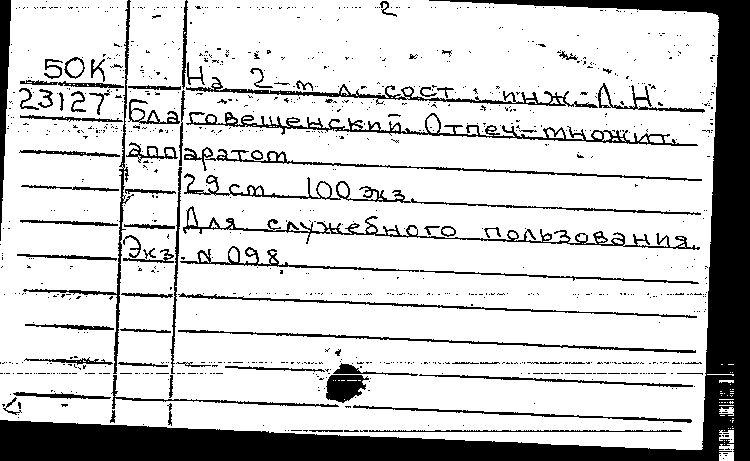 2
50К На 2-м л. сост.: инж. Л.Н.
23127 Благовещенский. Отпеч. множит.
аппаратом
29 см. 100 экз.
Для служебного пользования.
Экз. N 098.